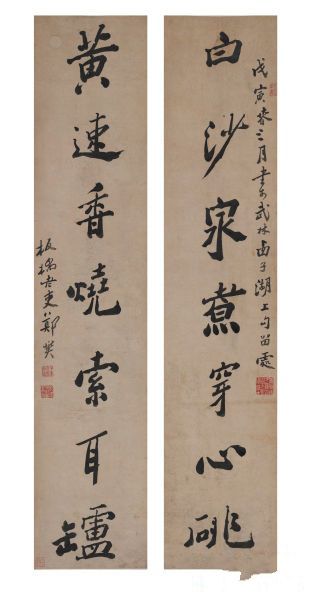 戊寅春三月書於武林西子湖上勾留處
白沙泉煮穿心
黃速香燒索耳罏
板橋老鄭燮